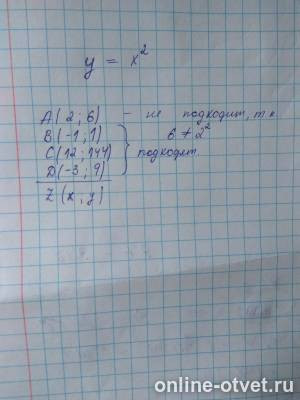 y = x²
A(2;6) - не подходит, т.к.
B(-1;1) 6 ≠ 2²
C(12;144) подходят
D(-3;9)
Z(x;y)
online-otvet.ru